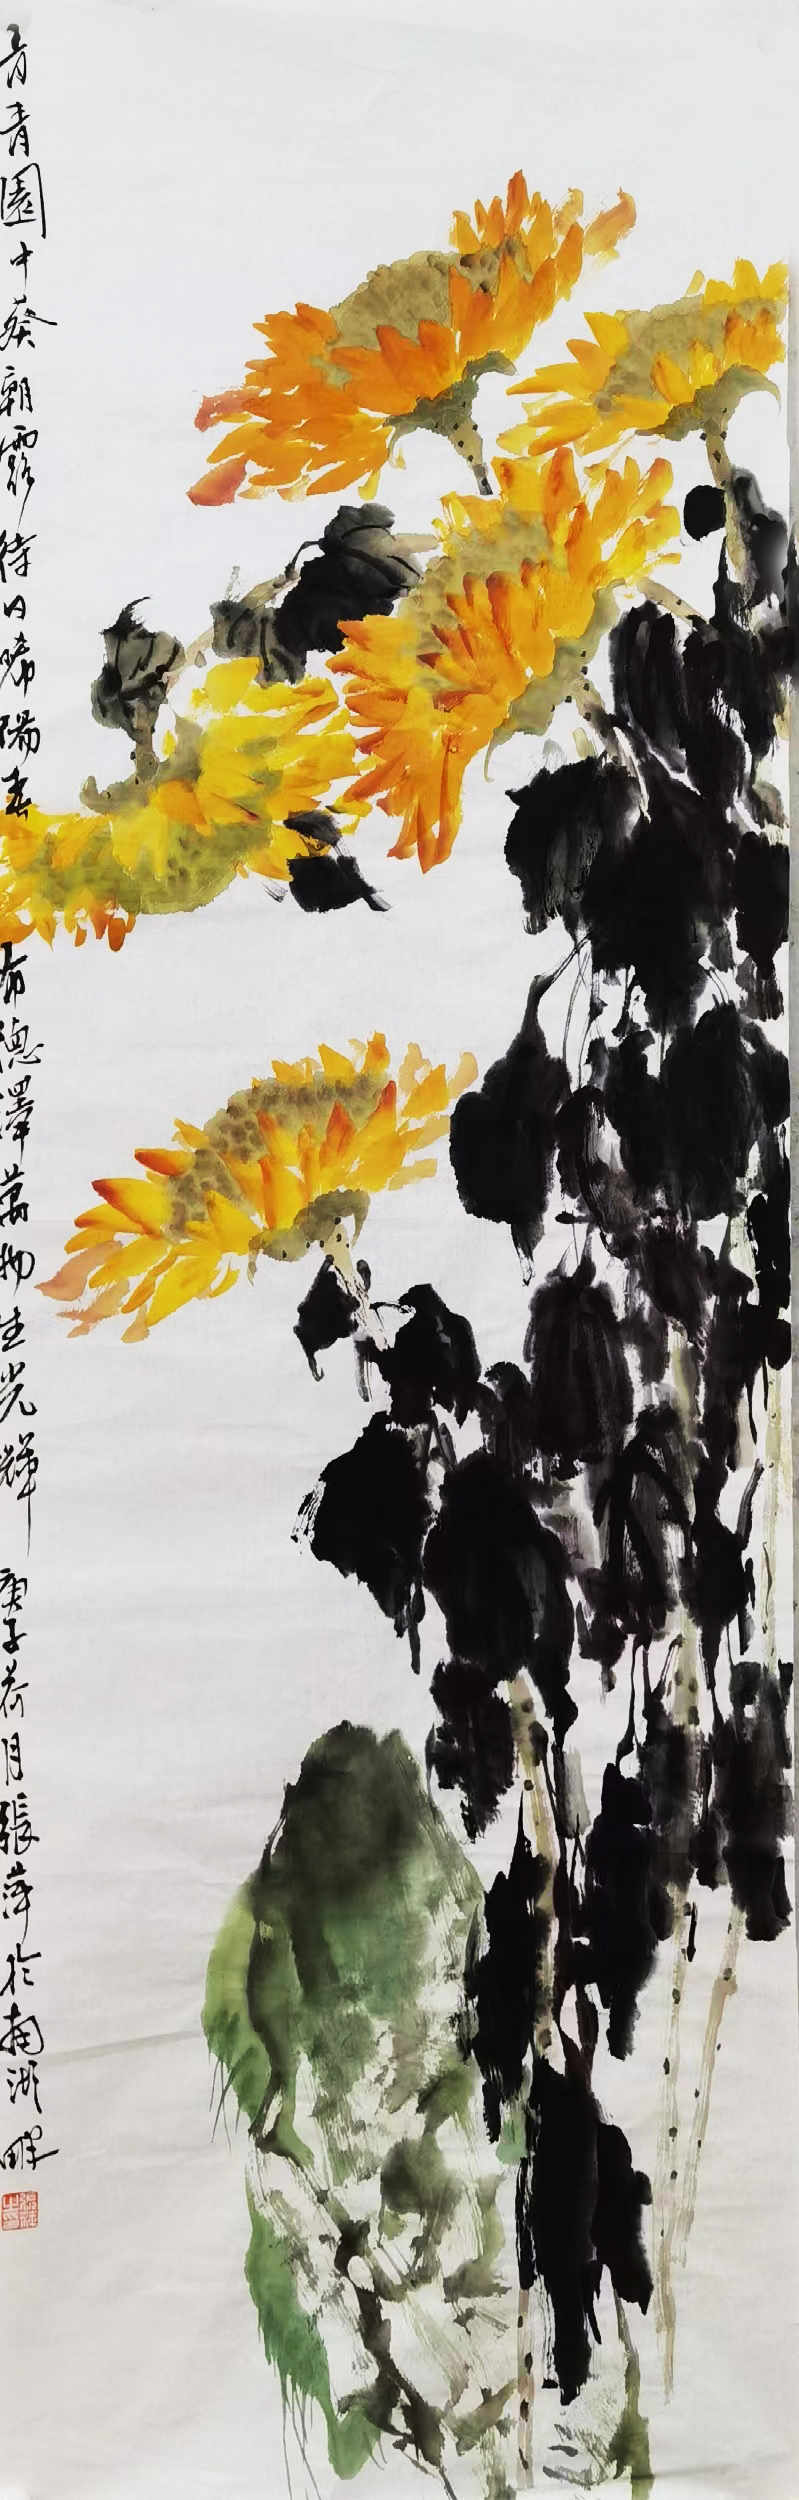 青青園中葵朝露待日晞陽春布德澤萬物生光輝 庚子荷月張萍於南湖畔